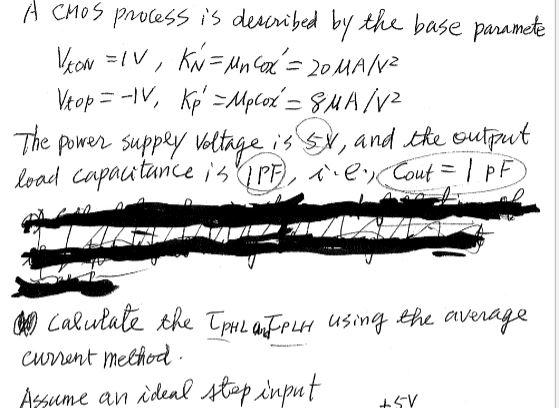 A CMOS process is described by the base paramete
VtON = 1V, KN' = μnCox' = 20 μA/V²
Vtop = -1V, Kp' = μpCox' = 8 μA/V²
The power supply voltage is 5V, and the output
load capacitance is 1PF, i.e., Cout = 1 pF
Calulate the τPHL and τPLH using the average
current method.
Assume an ideal step input
+5V